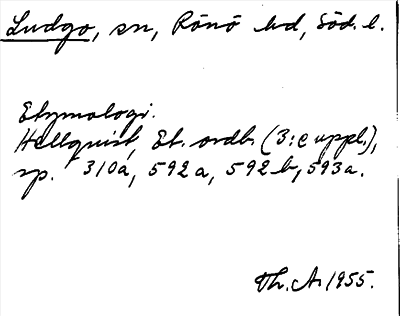 Ludgo, sn, Rönö hd, Söd. l.
Etymologi.
Hellquist, Et. ordb. (3:e uppl.),
sp. 310a, 592a, 592b, 593a.
Th. A. 1955.